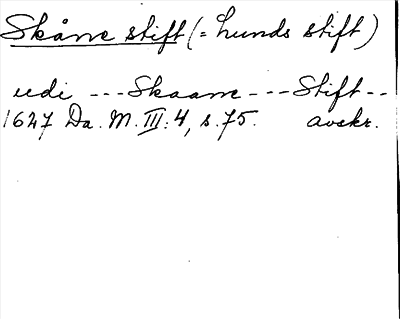 Skåne stift (= Lunds stift)
udi --- Skaane --- Stift --
1627 Da. M. III: 4, s. 75. avskr.